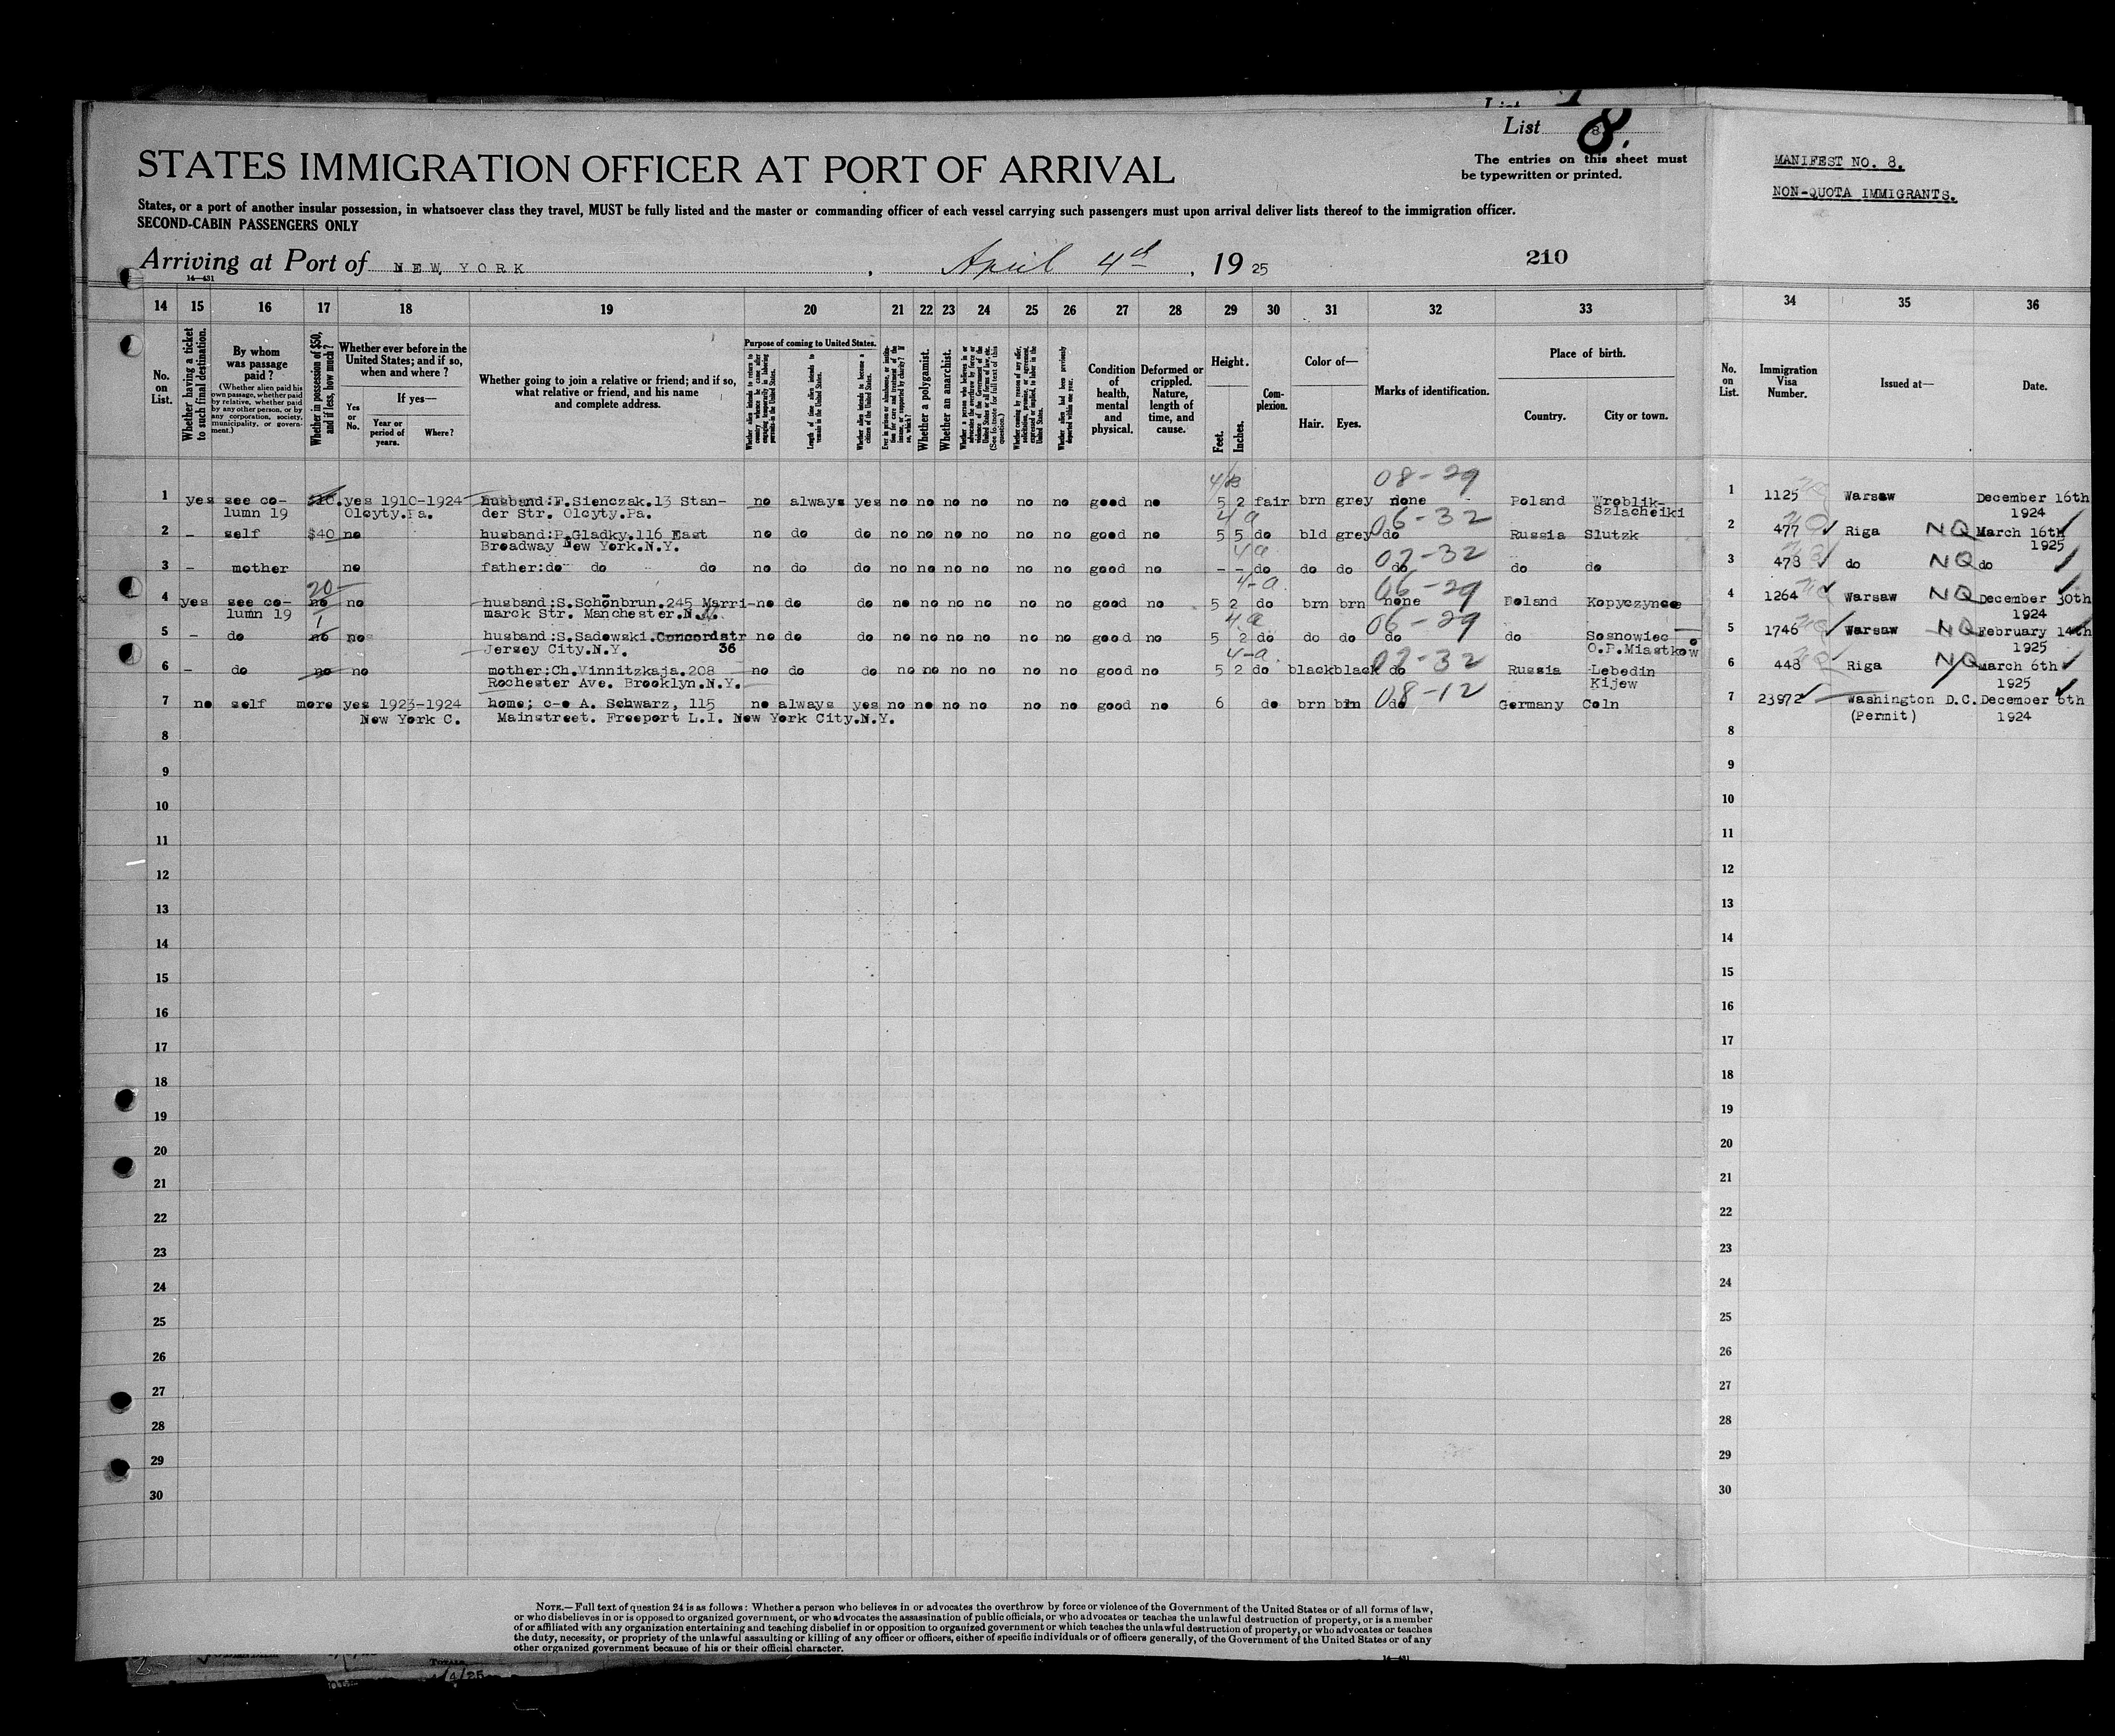 List 8.
The entries on this sheet must
be typewritten or printed.
STATES IMMIGRATION OFFICER AT PORT OF ARRIVAL
States, or a port of another insular possession, in whatsoever class they travel, MUST be fully listed and the master or commanding officer of each vessel carrying such passengers must upon arrival deliver lists thereof to the immigration officer.
SECOND-CABIN PASSENGERS ONLY
Arriving at Port of NEW YORK, April 4th, 1925
14—431
210
MANIFEST NO. 8.
NON-QUOTA IMMIGRANTS.
14 15 16 17 18 19 20 21 22 23 24 25 26 27 28 29 30 31 32 33 34 35 36
No. on List.
Whether having a ticket to such final destination.
By whom was passage paid?
(Whether alien paid his own passage, whether paid by relative, whether paid by any other person, or by any corporation, society, municipality, or government.)
Whether in possession of $50, and if less, how much?
Whether ever before in the United States; and if so, when and where?
Yes or No.
If yes—
Year or period of years.
Where?
Whether going to join a relative or friend; and if so, what relative or friend, and his name and complete address.
Purpose of coming to United States.
Length of time alien intends to remain in the United States.
Whether alien intends to become a citizen of the United States.
Whether a polygamist.
Whether an anarchist.
Condition of health, mental and physical.
Deformed or crippled. Nature, length of time, and cause.
Height.
Feet.
Inches.
Complexion.
Color of—
Hair.
Eyes.
Marks of identification.
Place of birth.
Country.
City or town.
No. on List.
Immigration Visa Number.
Issued at—
Date.
4/B 08-29
1 yes see co- $10. yes 1910-1924 husband:F.Sienczak.13 Stan- no always yes no no no no no no good no 5 2 fair brn grey none Poland Wroblik- 1 1125 Warsaw December 16th
lumn 19 Olcyty.Pa. der Str. Olcyty.Pa. Szlacheiki 1924
4a 06-32
2 - self $40 no husband:P.Gladky.116 East no do do no no no no no no good no 5 5 do bld grey do Russia Slutzk 2 477 Riga NQ March 16th
Broadway New York.N.Y. 1925
4a 07-32
3 - mother no father:do do do no do do no no no no no no good no - - do do do do do do 3 478 do NQ do
20 4-a 06-29
4 yes see co- no no husband:S.Schönbrun.245 Marri- no do do no no no no no no good no 5 2 do brn brn none Poland Kopyczynce 4 1264 Warsaw NQ December 30th
lumn 19 marck Str. Manchester.N. 1924
1 4a 06-29
5 - do no no husband:S.Sadowski.Concordstr no do do no no no no no no good no 5 2 do do do do do Sosnowiec 5 1746 Warsaw NQ February 14th
Jersey City.N.Y. 36 O.P.Miastkow 1925
4-a 07-32
6 - do no no mother:Ch.Vinnitzkaja.208 no do do no no no no no no good no 5 2 do black black do Russia Lebedin 6 448 Riga NQ March 6th
Rochester Ave. Brooklyn.N.Y. Kijew 1925
08-12
7 no self more yes 1923-1924 home; c-o A. Schwarz, 115 no always yes no no no no no no good no 6 do brn brn do Germany Coln 7 23972 Washington D.C. December 6th
New York C. Mainstreet. Freeport L.I. New York City.N.Y. (Permit) 1924
8 8
9 9
10 10
11 11
12 12
13 13
14 14
15 15
16 16
17 17
18 18
19 19
20 20
21 21
22 22
23 23
24 24
25 25
26 26
27 27
28 28
29 29
30 30
NOTE.—Full text of question 24 is as follows: Whether a person who believes in or advocates the overthrow by force or violence of the Government of the United States or of all forms of law,
or who disbelieves in or is opposed to organized government, or who advocates the assassination of public officials, or who advocates or teaches the unlawful destruction of property, or is a member
of or affiliated with any organization entertaining and teaching disbelief in or opposition to organized government or which teaches the unlawful destruction of property, or who advocates or teaches
the duty, necessity, or propriety of the unlawful assaulting or killing of any officer or officers, either of specific individuals or of officers generally, of the Government of the United States or of any
other organized government because of his or their official character.
14—431